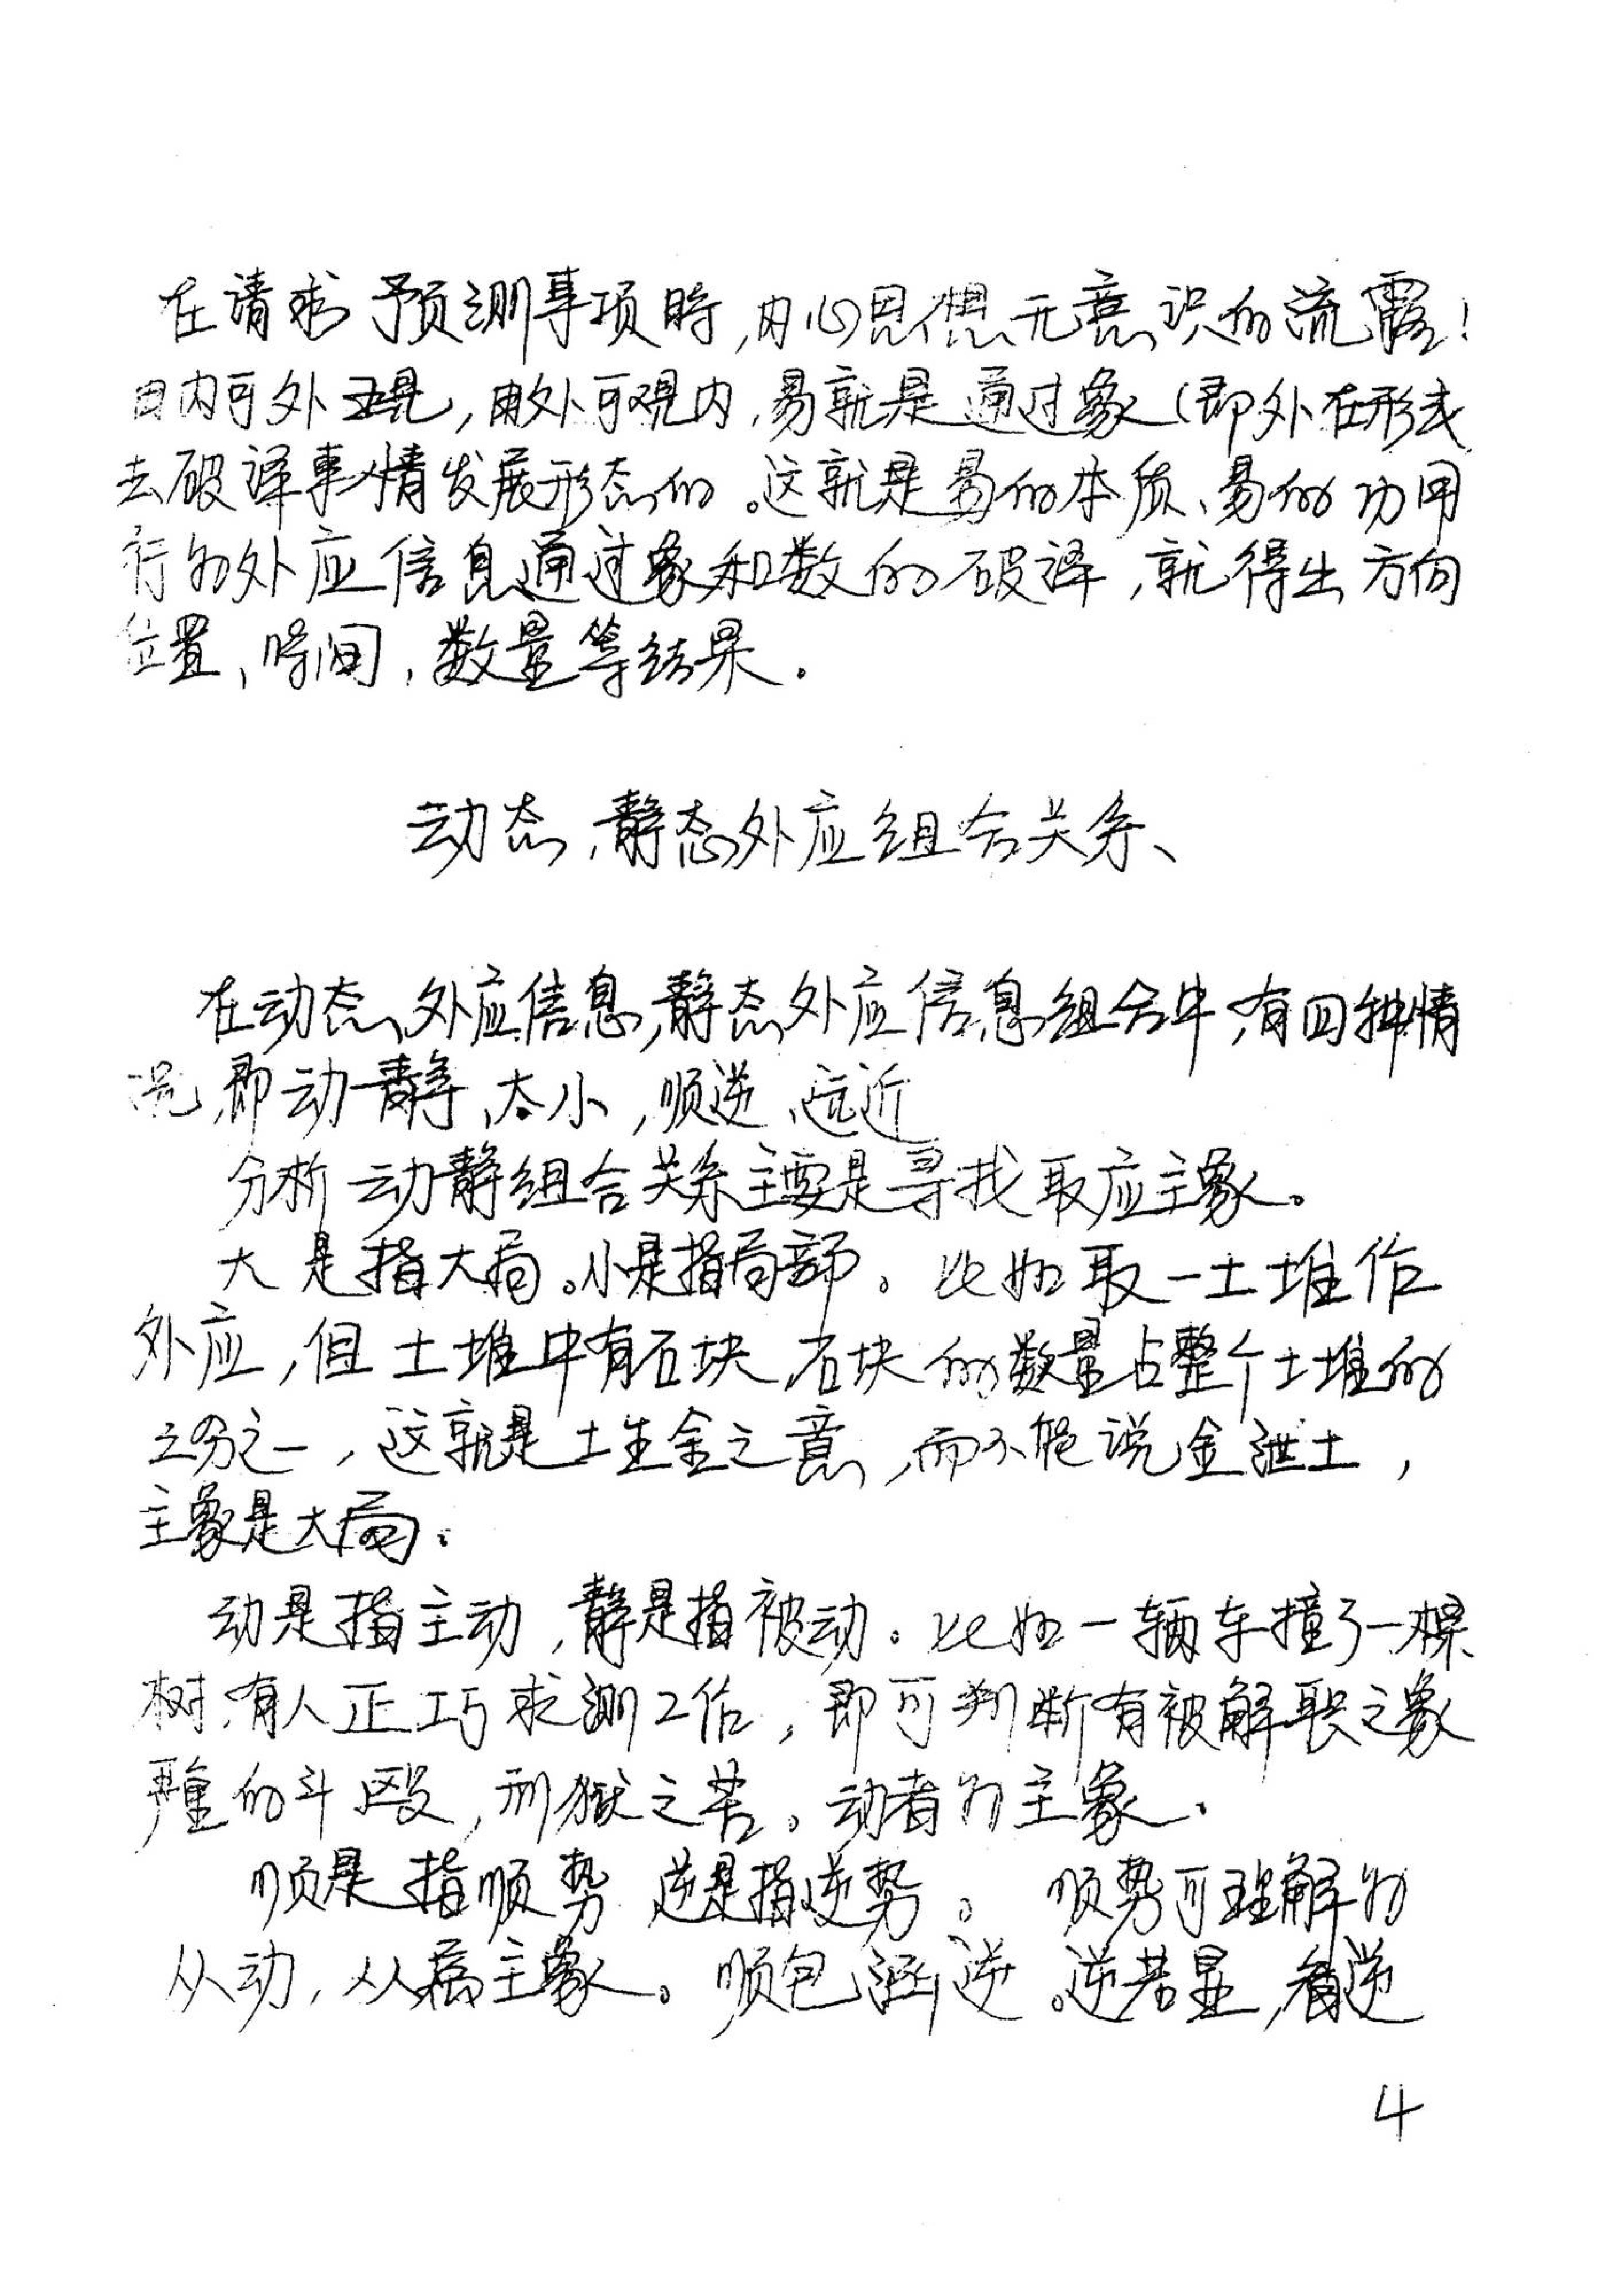 在请求预测事项时,内心思想无意识的流露!
由内可外现,由外可观内,易就是通过象(即外在形式
去破译事情发展形态的。这就是易的本质、易的功用
行为外应信息通过象和数的破译,就得出方向
位置、时间,数量等结果.
动态,静态外应组合关系、
在动态、外应信息,静态外应信息组合中,有四种情
况,即动静、大小,顺逆、远近
分析动静组合关系主要是寻找取应主象。
大是指大局。小是指局部。比如取一土堆作
外应,但土堆中有石块,石块的数量占整个土堆的
分之一,这就是土生金之意,而不能说金泄土,
主象是大局.
动是指主动,静是指被动。比如一辆车撞了一棵
树,有人正巧求测工作,即可判断有被解职之象
严重的斗殴,刑狱之苦。动者为主象.
顺是指顺势 逆是指逆势。 顺势可理解为
从动,从属主象。顺包涵逆。逆若显,看逆
4